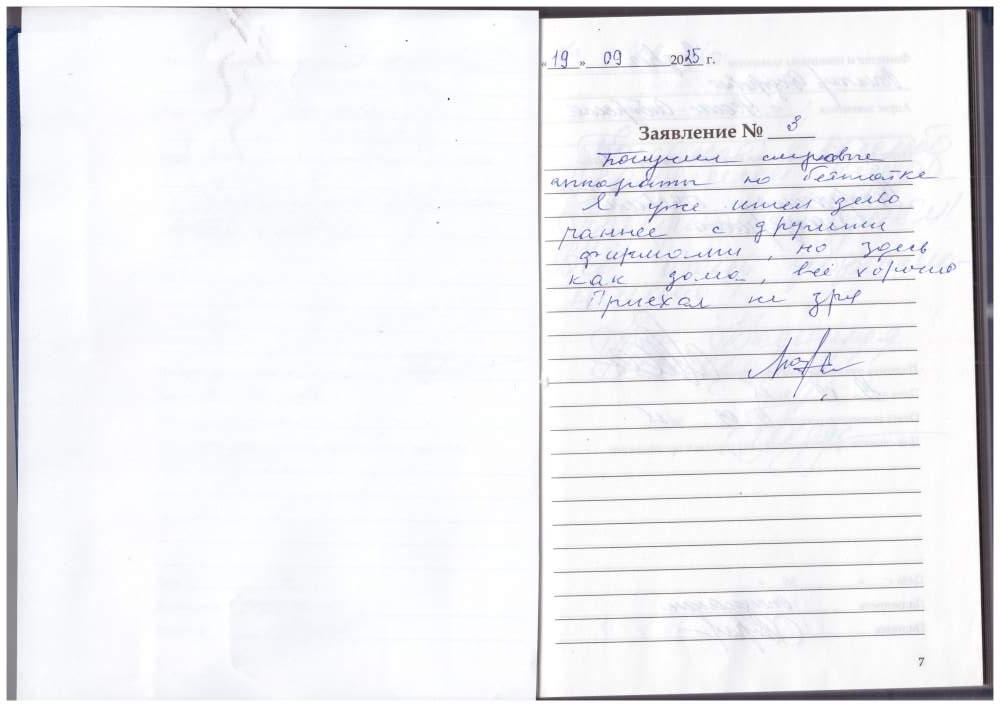 «19» 09 2025 г.
Заявление № 3
Получил слуховые
аппараты по бетшотке
Я уже имел дело
раннее с другими
фирмами, но здесь
как дома, всё хорошо
Приехал не зря
7